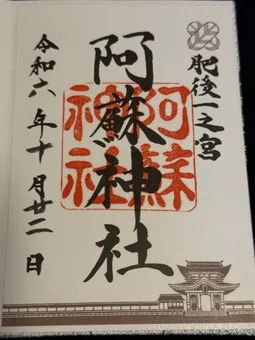 肥後一之宮
阿蘇神社
阿蘇神社
令和六年十月廿二日